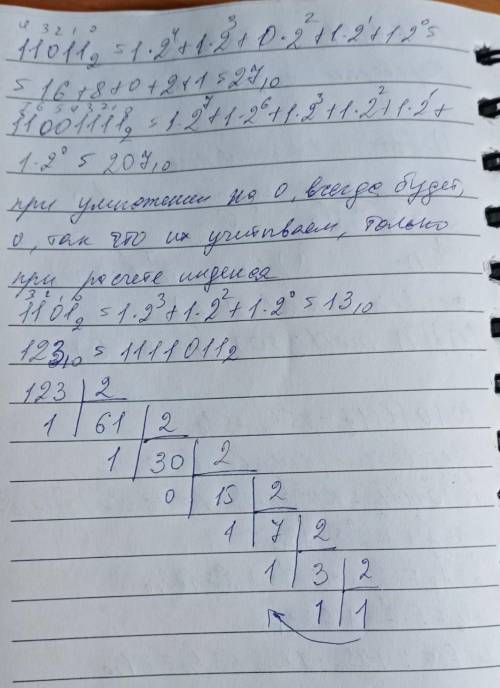 4 3 2 1 0
11011₂ = 1·2⁴+1·2³+0·2²+1·2¹+1·2⁰=
= 16+8+0+2+1=27₁₀
7 6 5 4 3 2 1 0
11001111₂ = 1·2⁷+1·2⁶+1·2³+1·2²+1·2¹+
1·2⁰ = 207₁₀
при умножении на 0, всегда будет,
0, так что их учитываем, только
при расчете индекса
3 2 1 0
1101₂ = 1·2³+1·2²+1·2⁰=13₁₀
123₁₀ = 1111011₂
123 2
1 61 2
1 30 2
0 15 2
1 7 2
1 3 2
1 1